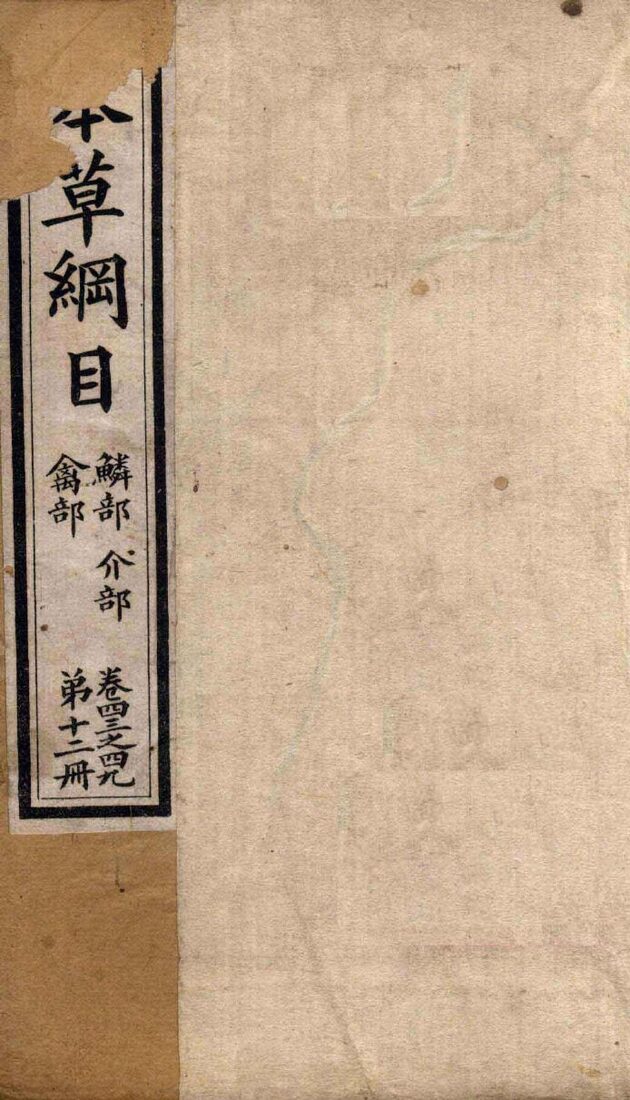 本草綱目
鱗部 介部
禽部
卷四三之四九
弟十二冊